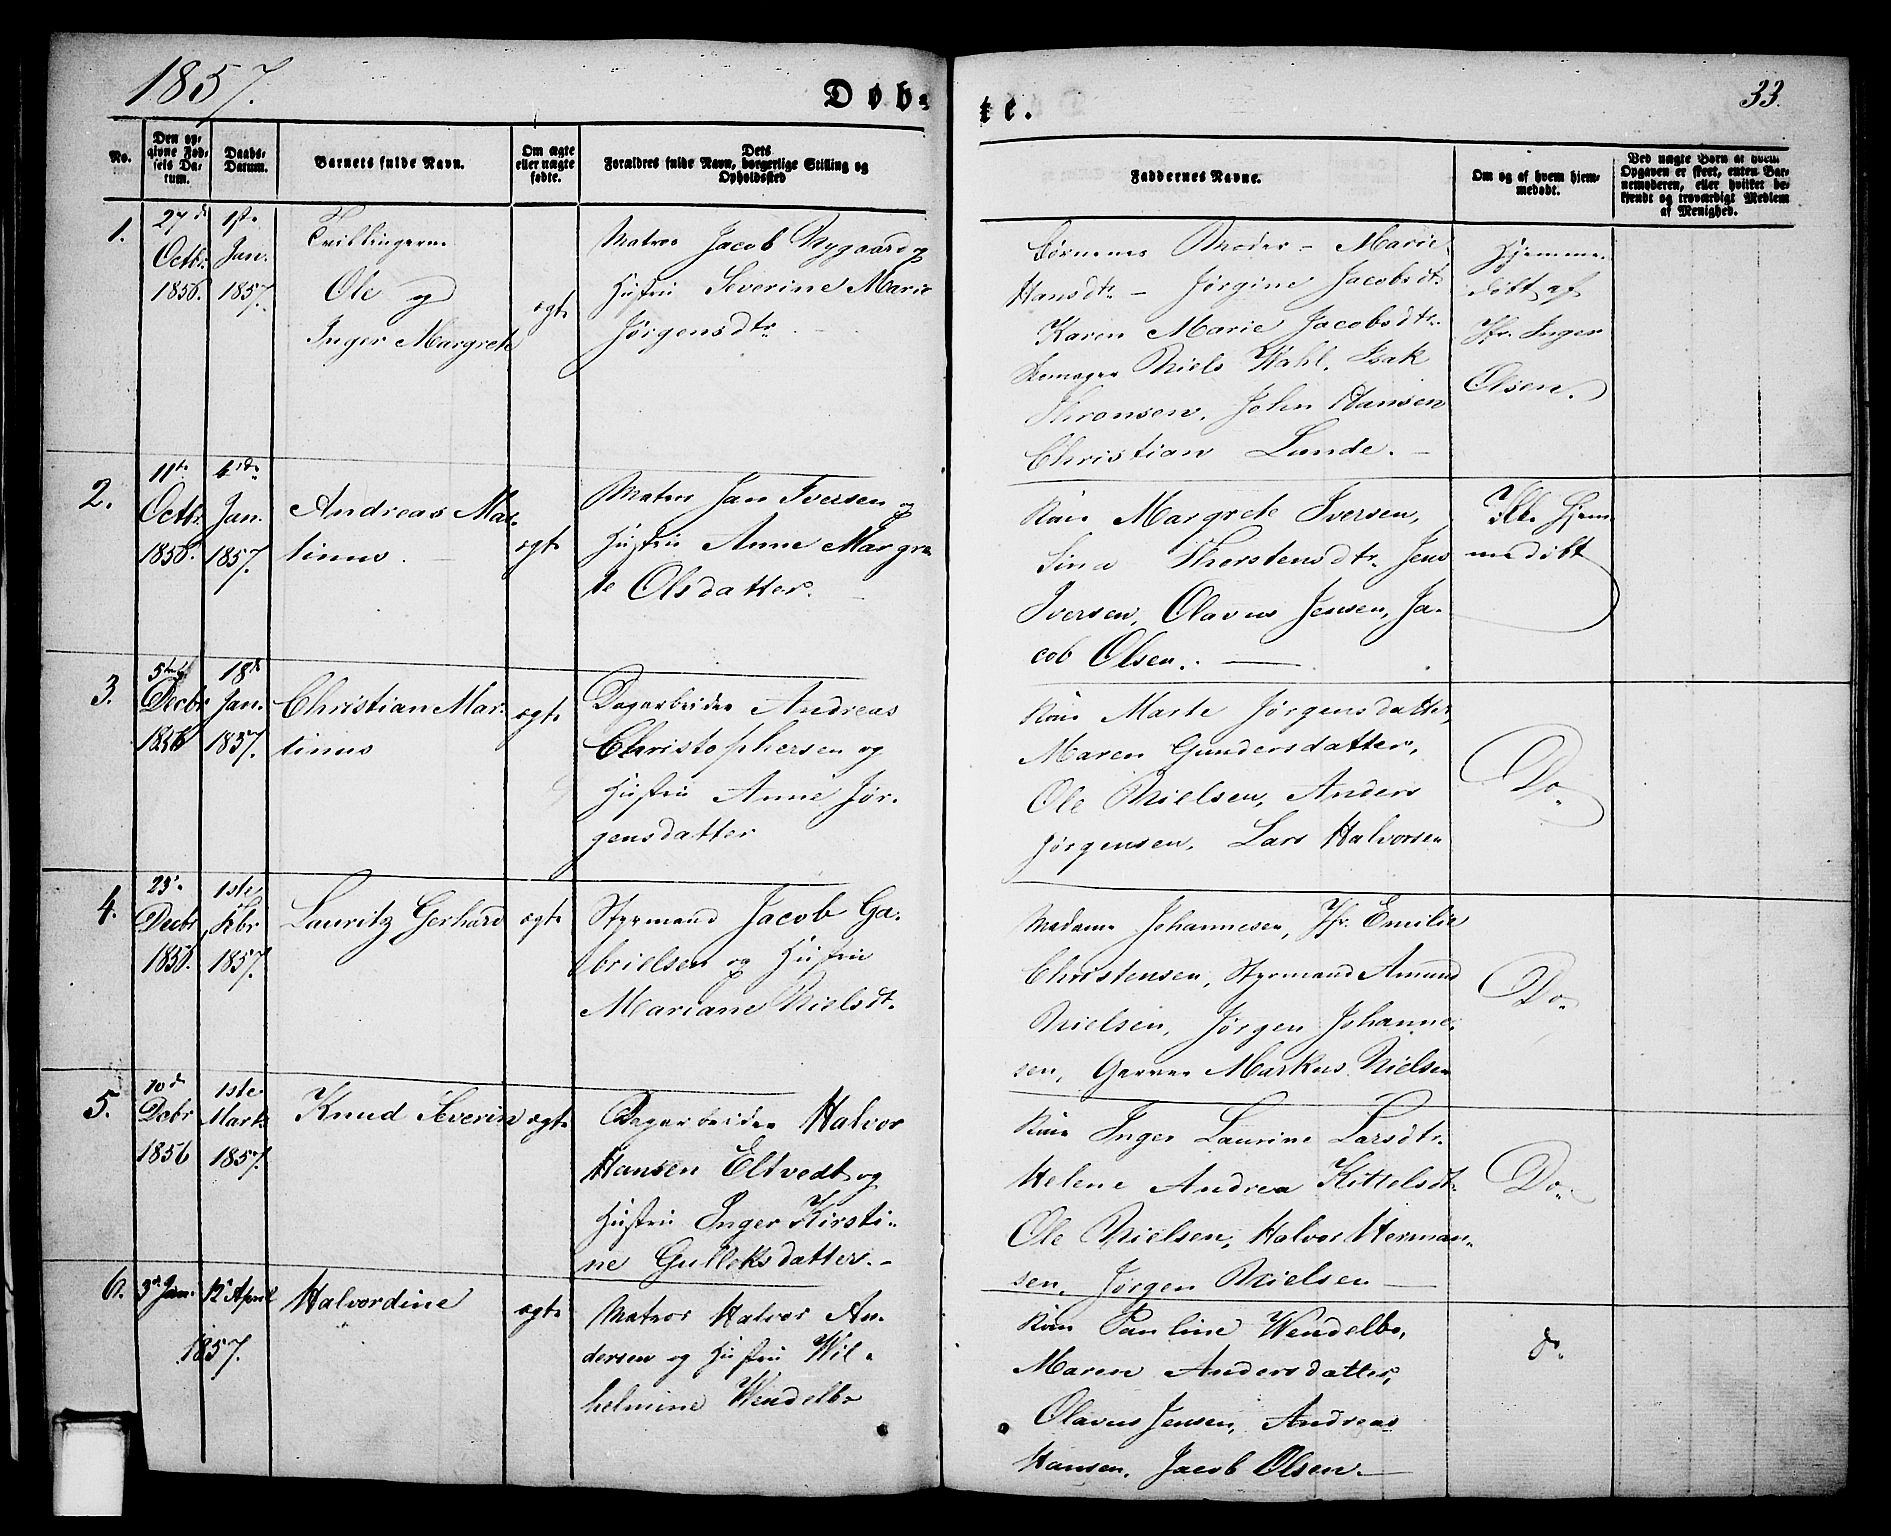 1857.
Døb-
te.
33.
No.
Den op-
givne Fød-
sels Da-
tum.
Daabs-
Datum.
Barnets fulde Navn.
Om ægte
eller uægte
fødte.
Dets
Forældres fulde Navn, borgerlige Stilling og
Opholdssted
Faddernes Navne.
Om og af hvem hjem-
medøbt.
Ved uægte Børn at hvem
Opgaven er skeet, enten Bar-
nemoderen, eller hvilket be-
kjendt og troværdigt Medlem
af Menighed.
1.
27de
Octbr.
1856.
1ste
Jan.
1857.
Tvillingerne
Ole og
Inger Margrete
ægte
Matros Jacob Nygaard og
Hustru Severine Marie
Jørgensdtr.
Børnenes Moder - Marie
Hansdtr - Jørgine Jacobsdtr
Karen Marie Jacobsdtr.
Niels Wahl, Isak
Thronsen, John Hansen
Christian Lunde.
Hjemme-
døbt af
Jfr. Inger
Olsen.
2.
11te
Octbr.
1856.
4de
Jan.
1857.
Andreas Mar-
tinus
ægte
Matros Jan Iversen og
Hustru Anne Margre-
te Olsdatter.
Kone Margrete Iversen,
Sina Thorstensdtr. Jens
Iversen, Olavus Jensen, Ja-
cob Olsen.
Ikke hjem-
medøbt
3.
5te
Decbr
1856
18de
Jan.
1857.
Christian Mar-
tinus
ægte
Dagarbeider Andreas
Christophersen og
Hustru Anne Jør-
gensdatter
Kone Marte Jørgensdatter,
Maren Gundersdatter,
Ole Nielsen, Anders
Jørgensen, Lars Halvorsen
Do
4.
25
Decbr
1856.
1ste
Fbr.
1857.
Lauritz Gerhard
ægte
Styrmand Jacob Ga-
brielsen og Hustru
Mariane Nielsdt.
Madame Johannesen, Jfr. Emilie
Christensen, Styrmand Amund
Nielsen, Jørgen Johanne-
sen, Garver Markus Nielsen
Do
5.
10de
Debr
1856
1ste
Marts
1857.
Knud Severin
ægte
Dagarbeider Halvor
Hansen Eltvedt og
Hustru Inger Kirsti-
ne Gulleksdatter.
Kone Inger Laurine Larsdtr.
Helene Andrea Kittelsdt.
Ole Nielsen, Halvor Herman-
sen, Jørgen Nielsen
Do
6.
3de Jan.
12te April
1857.
Halvordine
ægte
Matros Halvor An-
dersen og Hustru Wil-
helmine Wendelbo
Kone Pauline Wendelbo,
Maren Andersdatter,
Olavus Jensen, Andreas
Hansen, Jacob Olsen.
do